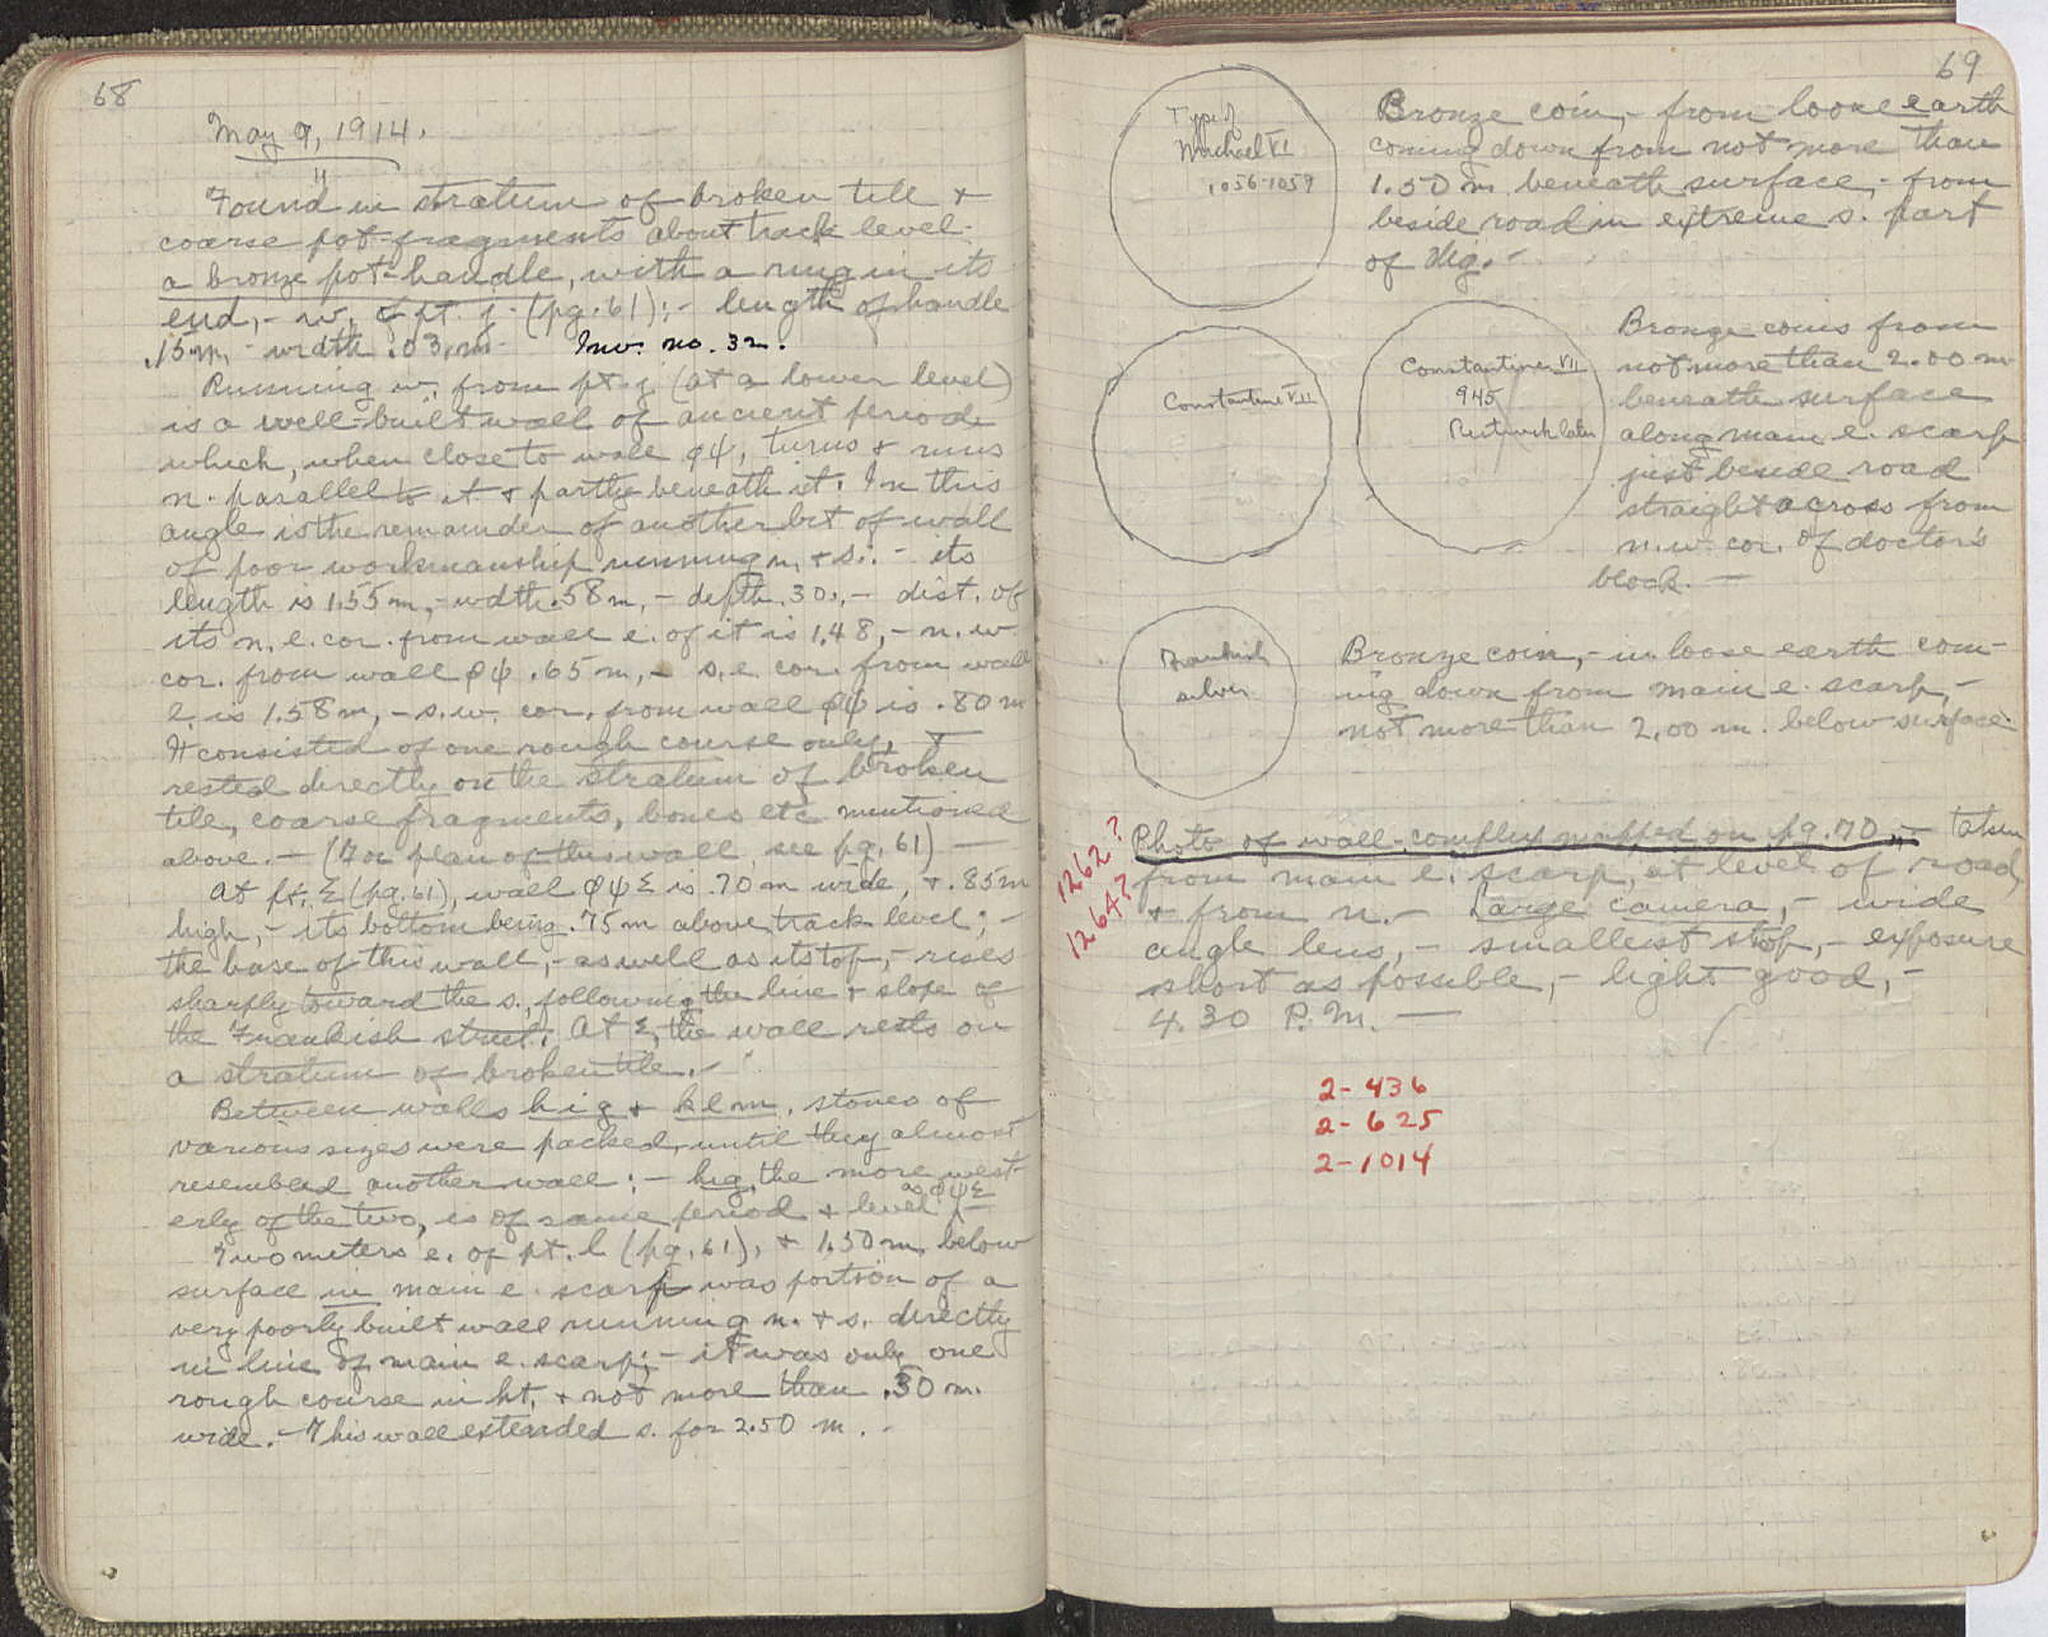 68
May 9, 1914.
Found in stratum of broken tile +
coarse pot-fragments about track level
a bronze pot-handle, with a ring in its
end, - w. of pt. j. (pg. 61); - length of handle
.15 m, - width .03 m. Inv. no. 32.
Running w. from pt. j (at a lower level)
is a well-built wall of ancient period
which, when close to wall φψ, turns + runs
n. parallel to it + partly beneath it. In this
angle is the remainder of another bit of wall
of poor workmanship running n. + s. - its
length is 1.55 m, - wdth .58 m, - depth .30, - dist. of
its n.e. cor. from wall e. of it is 1.48, - n.w.
cor. from wall φψ .65 m, - s.e. cor. from wall
e. is 1.58 m, - s.w. cor. from wall φψ is .80 m
It consisted of one rough course only, +
rested directly on the stratum of broken
tile, coarse fragments, bones etc mentioned
above. - (For plan of this wall, see pg. 61) -
At pt. Σ (pg. 61), wall φψΣ is .70 m wide, + .85 m
high, - its bottom being .75 m above track level; -
the base of this wall, - as well as its top, - rises
sharply toward the s., following the line + slope of
the Frankish street. At Σ, the wall rests on
a stratum of broken tile. -
Between walls h i g + k l m, stones of
various sizes were packed, until they almost
resembled another wall; - hig, the more west-
erly of the two, is of same period + level as φψΣ -
Two meters e. of pt. l (pg. 61), + 1.50 m. below
surface in main e. scarp was portion of a
very poorly built wall running n. + s. directly
in line of main e. scarp; - it was only one
rough course in ht. + not more than .50 m.
wide. - This wall extended s. for 2.50 m. -
69
Type of
Michael VI
1056-1059
Bronze coin, - from loose earth
coming down from not more than
1.50 m. beneath surface, - from
beside road in extreme s. part
of dig. -
Constantine VII
Constantine VII
945
Restruck later
Bronze coins from
not more than 2.00 m.
beneath surface
along main e. scarp
just beside road
straight across from
n.w. cor. of doctor's
block. -
Frankish
silver
Bronze coin, - in loose earth com-
ing down from main e. scarp, -
not more than 2.00 m. below surface.
1262?
1264?
Photo of wall-complex mapped on pg. 70, - taken
from main e. scarp, at level of road,
+ from n. - Large camera, - wide
angle lens, - smallest stop, - exposure
short as possible, - light good, -
4.30 P.M. -
2-436
2-625
2-1014